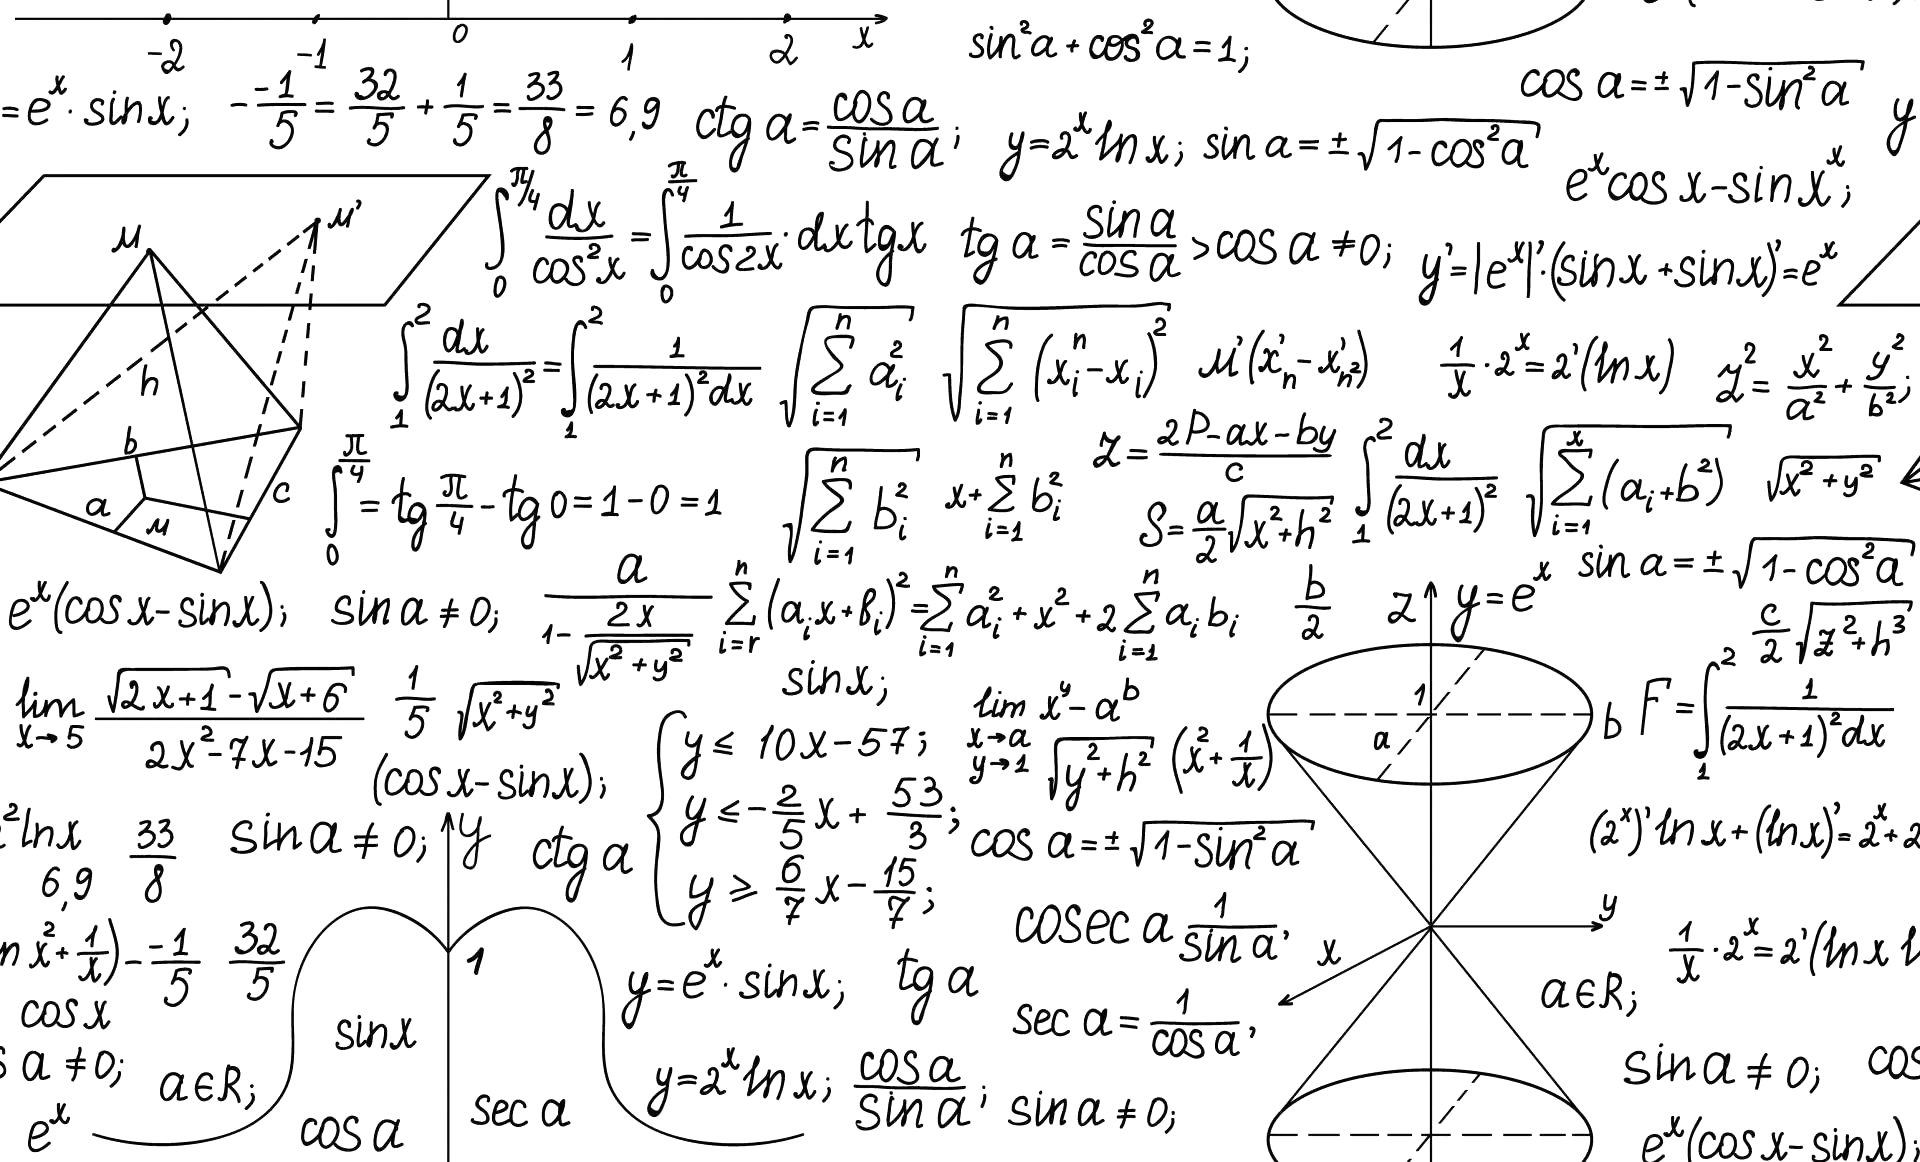 -2 -1 0 1 2 x
sin²a + cos²a = 1;
cos a = ± √(1-sin²a)
= eˣ · sin x; - -1/5 = 32/5 + 1/5 = 33/8 = 6,9
ctg a = cos a / sin a;
y = 2ˣ ln x; sin a = ± √(1-cos²a)
y
eˣcos x - sin xˣ;
M M'
∫₀^(π/4) dx/cos²x = ∫₀^(π/4) 1/cos2x · dx tg x
tg a = sin a / cos a > cos a ≠ 0;
y' = |eˣ|' · (sin x + sin x)' = eˣ
h b a M c
∫₁² dx/(2x+1)² = ∫₁² 1/(2x+1)²dx
√(∑ᵢ₌₁ⁿ aᵢ²)
√(∑ᵢ₌₁ⁿ (xᵢⁿ - xᵢ)²)
M'(x'ₙ - x'ₙ²)
1/x · 2ˣ = 2'(ln x)
z² = x²/a² + y²/b²;
∫₀^(π/4) = tg π/4 - tg 0 = 1 - 0 = 1
√(∑ᵢ₌₁ⁿ bᵢ²)
x + ∑ᵢ₌₁ⁿ bᵢ²
z = (2P - ax - by)/c
S = a/2 √(x²+h²)
∫₁² dx/(2x+1)²
√(∑ᵢ₌₁ˣ (aᵢ+b²))
√(x²+y²)
sin a = ± √(1-cos²a)
eˣ(cos x - sin x); sin a ≠ 0;
a/(1 - 2x/√(x²+y²))
∑ᵢ₌ᵣⁿ (aᵢx + вᵢ)² = ∑ᵢ₌₁ⁿ aᵢ² + x² + 2∑ᵢ₌₁ⁿ aᵢbᵢ
b/2
z y = eˣ
c/2 √(z²+h³)
lim x→5 (√(2x+1) - √(x+6))/(2x² - 7x - 15)
1/5 √(x²+y²)
sin x;
lim x→a y→1 xʸ - aᵇ
√(y²+h²) (x² + 1/x)
1 a b
F = ∫₁² 1/(2x+1)²dx
(cos x - sin x);
y ≤ 10x - 57;
y ≤ - 2/5 x + 53/3;
y ≥ 6/7 x - 15/7;
² ln x 33/8 sin a ≠ 0; y ctg a
6,9
cos a = ± √(1-sin²a)
(2ˣ)' ln x + (ln x)' = 2ˣ + 2
n x² + 1/x) - -1/5 32/5
1
cosec a 1/sin a,
x y
1/x · 2ˣ = 2'(ln x
y = eˣ · sin x; tg a
a∈R;
cos x
sin x
sec a = 1/cos a,
a ≠ 0; a∈R;
y = 2ˣ ln x; cos a / sin a; sin a ≠ 0;
sin a ≠ 0; cos
eˣ cos a sec a
eˣ(cos x - sin x);